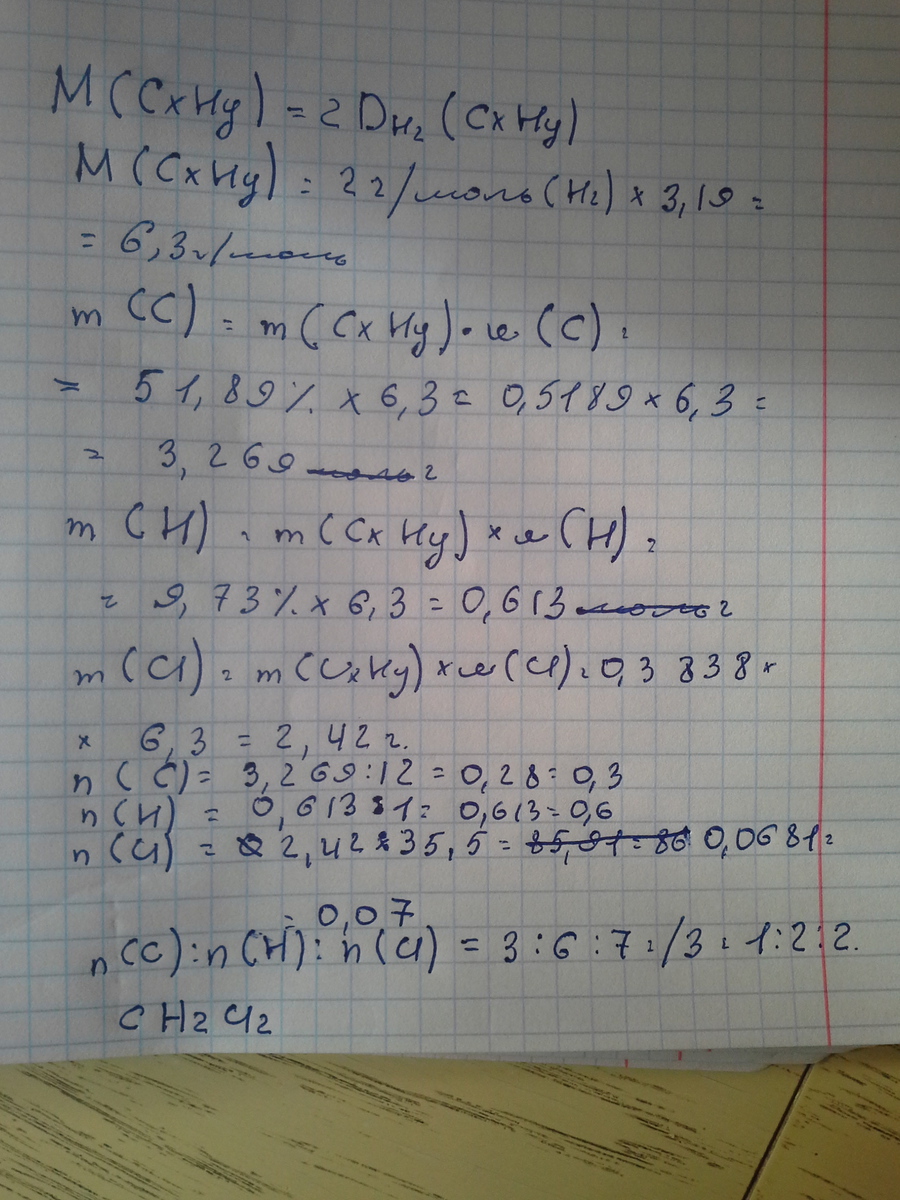 M(CxHy) = 2 DH₂ (CxHy)
M(CxHy) = 2 г/моль(H₂) × 3,19 =
= 6,3г/моль
m (C) = m(CxHy)·w(C) =
= 51,89% × 6,3 = 0,5189 × 6,3 =
= 3,269 моль г
m (H) = m(CxHy) × w(H) =
= 9,73% × 6,3 = 0,613 моль г
m (Cl) = m(CxHy) × w(Cl) = 0,3838 ×
× 6,3 = 2,42 г.
n (C) = 3,269:12 = 0,28 = 0,3
n (H) = 0,613:1 = 0,613 = 0,6
n (Cl) = 2,42:35,5 = 85,91 = 86 0,0681 =
= 0,07
n(C):n(H):n(Cl) = 3:6:7 = /3 = 1:2:2.
CH₂Cl₂